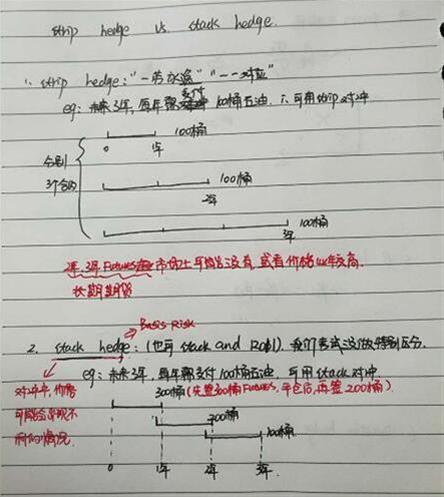 strip hedge vs. stack hedge.
1. strip hedge: "一劳永逸" "一一对应"
eg: 未来3年, 每年都支付100桶石油. ∴可用strip对冲
100桶
0 1年
分别
3个合约
100桶
2年
100桶
3年
2年、3年Futures在市场上可能会没有, 或者价格比较高.
长期期货
Basis Risk
2. stack hedge: (也叫 stack and Roll). 我们考试没做特别区分.
eg: 未来3年, 每年都支付100桶石油, 可用stack对冲.
对冲中, 价格
可能会出现不
利的情况.
300桶(先签300桶Futures, 平仓后, 再签200桶)
200桶
100桶
0 1年 2年 3年